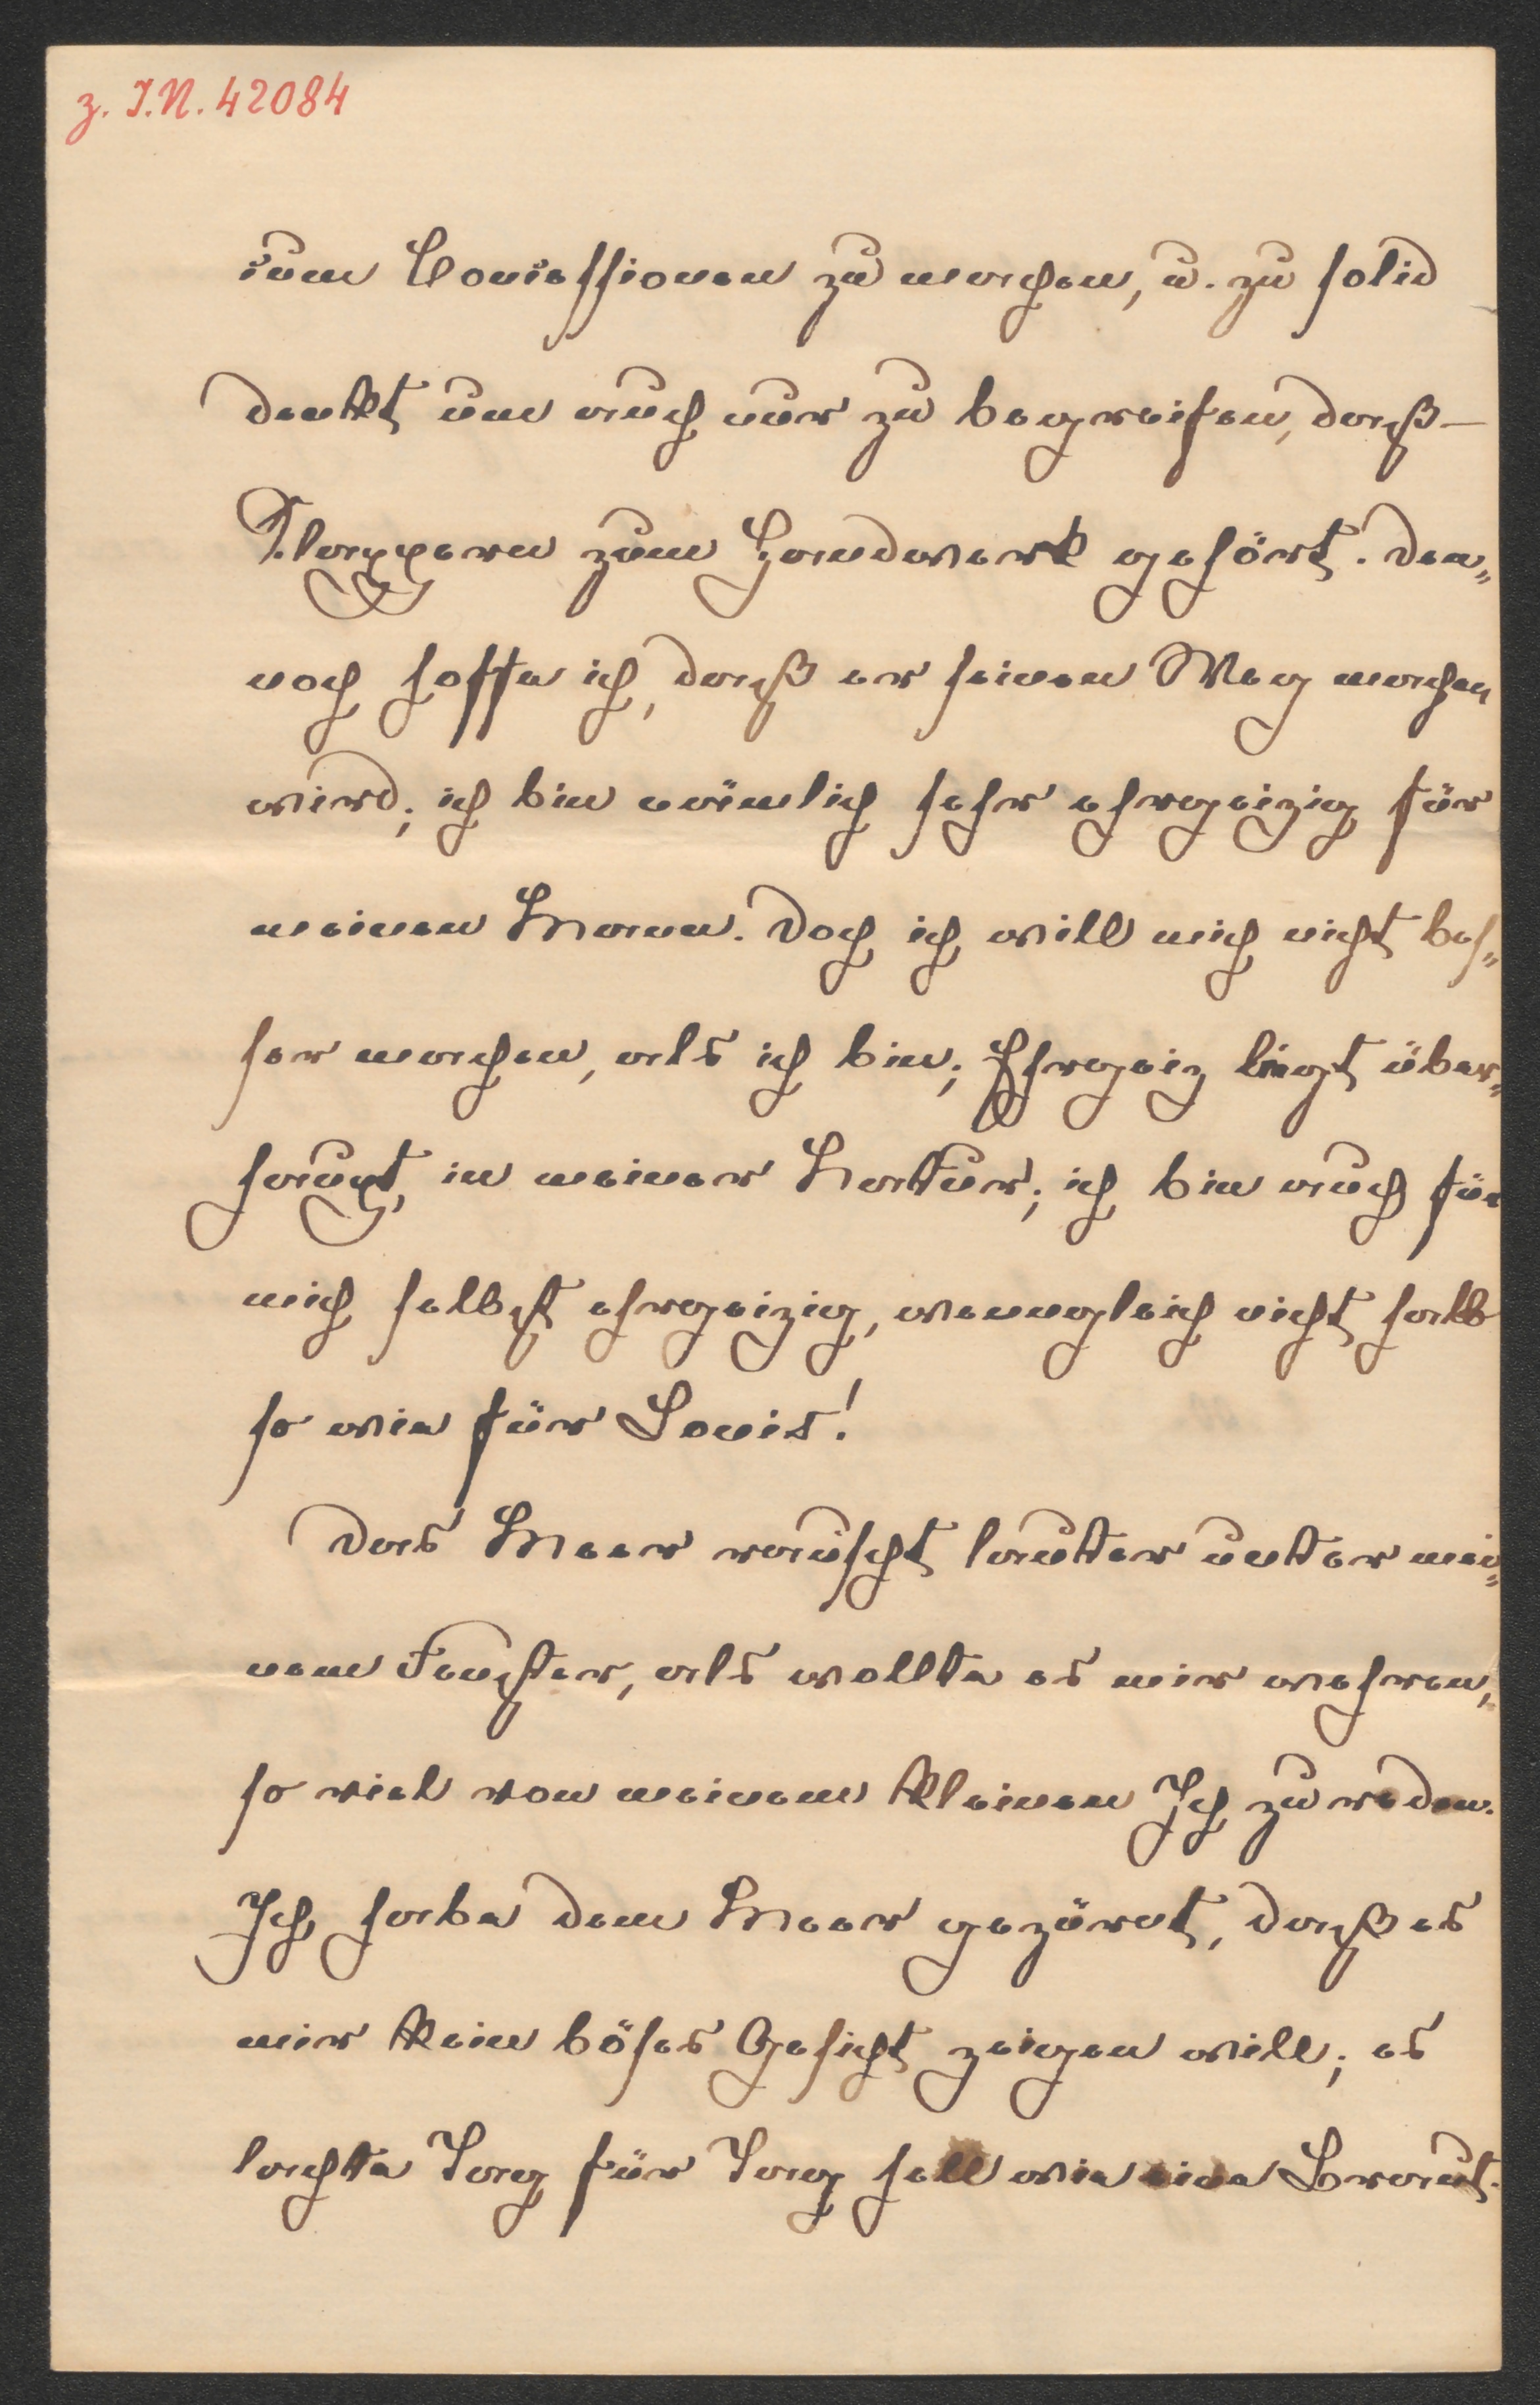 z. I.N. 42084
um Concessionen zu machen, u. zu solid
denkt um auch nur zu begreifen, daß –
Klappern zum Handwerk gehört. Den„
noch hoffe ich, daß er seinen Weg machen
wird; ich bin nämlich sehr ehrgeizig für
meinen Mann. Doch ich will mich nicht bes„
ser machen, als ich bin; Ehrgeiz liegt über„
haupt in meiner Natur; ich bin auch für
mich selbst ehrgeizig, wenngleich nicht halb
so wie für Louis!
Das Meer rauscht lauter unter mei„
nem Fenster, als wollte es mir wehren,
so viel von meinem kleinen Ich zu reden.
Ich habe dem Meer gezürnt, daß es
mir kein böses Gesicht zeigen will; es
lachte Tag für Tag hell wie eine Braut.